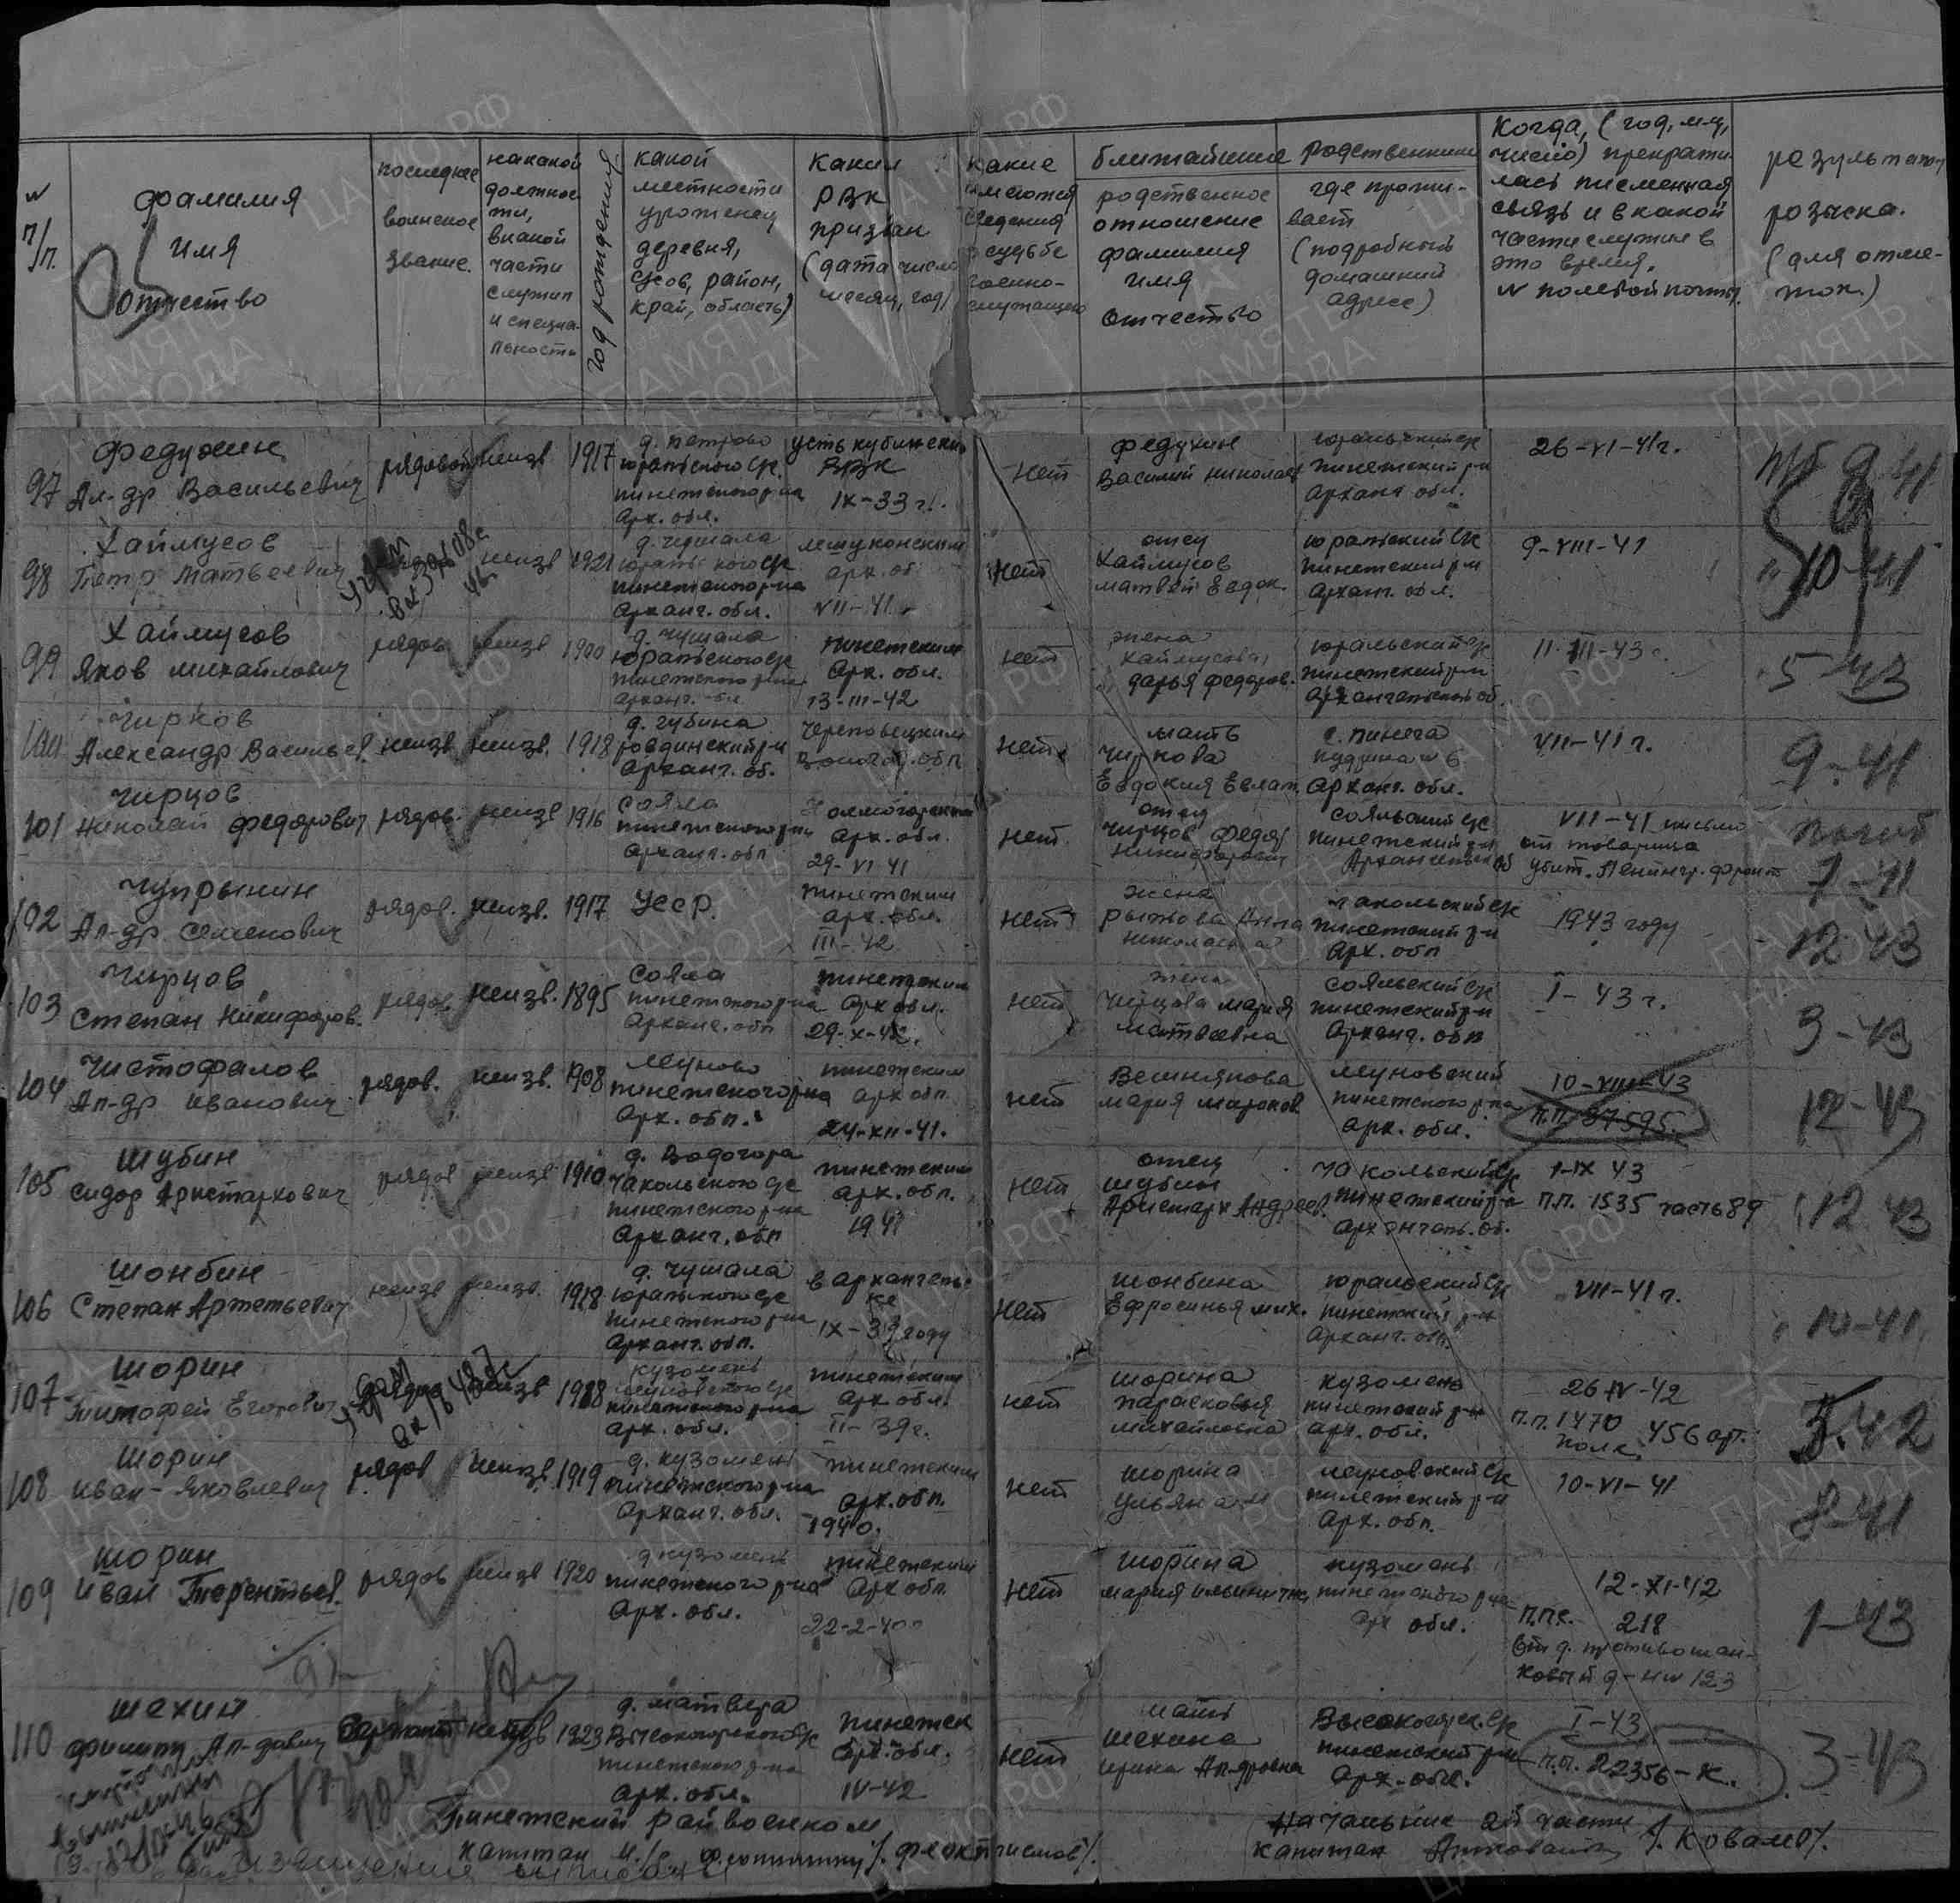 № п/п.
фамилия
имя
отчество
последнее
воинское
звание.
на какой
должнос
ти,
в какой
части
служил
и специа-
льность
год рождения
какой
местности
уроженец
деревня,
с/сов, район,
край, область)
каким
РВК
призван
(дата число
месяц, год)
какие
имеются
сведения
о судьбе
военно-
служащего
ближайшие родственники
родственное
отношение
фамилия
имя
отчество
где прожи-
вает
(подробный
домашний
адрес)
Когда, (год, м-ц,
число) прекрати-
лась письменная
связь и в какой
части служил в
это время.
№ полевой почты.
результаты
розыска.
(для отме-
ток.)
97
Федухин
Ал-др Васильевич
рядовой
неизв
1917
д. Петрово
Юральского с/с.
Пинежского р-на
Арх. обл.
Усть кубински
РВК
IX-33 г.
нет
Федухин
Василий Николаев
Юральский с/с
Пинежский р-н
Арханг обл.
26-VI-41г.
9 41
98
Хаймусов
Петр Матвеевич
неизв
1921
д. Чушала
Юральского с/с
Пинежского р-на
Арханг. обл.
Лешуконским
арх. об
VII-41
нет
отец
Хаймусов
Матвей Евдок.
Юральский с/с
Пинежский р-н
Арханг. обл.
9-VIII-41
10-41
99
Хаймусов
Яков Михайлович
рядов
неизв
1900
д. Чушала
Юральского с/с
Пинежского р-на
Арханг. обл
Пинежским
Арх. обл.
13-III-42
нет
жена
Хаймусова
Дарья Федоров.
Юральский с/с
Пинежский р-н
Архангельск об.
11-III-43 г.
5-43
100
Чирков
Александр Васильев.
неизв
неизв.
1918
д. Губина
Ровдинский р-н
Арханг. об.
Череповецким
Волог. обл
нет
мать
Чиркова
Евдокия
с. Пинега
Кудрина № 6
Арханг. обл.
VII-41 г.
9-41
101
Чирцов
Николай Федорович
рядов.
неизв
1916
Сояла
Пинежского р-на
Арханг. обл
Холмогорским
Арх. обл.
29-VI 41
нет
отец
Чирцов Федор
Никифорович
Сояльский с/с
Пинежский р-н
Архангельск об
VII-41 письмо
от товарища
убит. Ленингр. фронт
погиб
102
Чупрынин
Ал-др Семенович
рядов.
неизв.
1917
УССР.
Пинежским
арх. обл.
III-42
нет
жена
Рыжкова Анна
Николаевна
Чакольский с/с
Пинежский р-н
Арх. обл
1943 году
12 43
103
Чирцов
Степан Никифоров.
рядов.
неизв.
1895
Сояла
Пинежского р-на
Арханг. обл
Пинежским
Арх обл.
29-X-42.
нет
жена
Чирцова Мария
Матвеевна
Сояльский с/с
Пинежский р-н
Арханг. обл
I-43 г.
3-43
104
Чистофалов
Ал-др Иванович
рядов.
неизв.
1908
Леуново
Пинежского р-на
Арх. обл.
Пинежским
арх обл.
24-XII-41.
нет
Вешнякова
Мария Миронов
Леуновский
Пинежского р-на
Арх. обл.
10-VIII-43
П.П. 37595.
12-43
105
Шубин
Сидор Аристархович
рядов
неизв
1910
д. Водогора
Чакольского с/с
Пинежского р-на
Арханг. обл
Пинежским
арх. обл.
1941
нет
отец
Шубин
Аристарх Андреев.
Чакольский с/с
Пинежский р-н
Архангель. об.
1-IX 43
П.П. 1535 часть 89
12 43
106
Шонбин
Степан Артемьевич
неизв
неизв.
1918
д. Чушала
Юральского с/с
Пинежского р-на
Арханг. обл.
в Архангельс
ке
IX-39 году
нет
Шонбина
Ефросинья Мих.
Юральский с/с
Пинежский р-н
Арханг. обл.
VII-41 г.
10-41
107
Шорин
Тимофей Егорович
рядов
неизв
1918
Кузомень
Леуновского с/с
Пинежского р-на
Арх. обл.
Пинежским
Арх обл.
II-39г.
нет
Шорина
Парасковья
Михайловна
Кузомень
Пинежский р-н
арх. обл.
26-IV-42
П.П. 1470 456 арт.
полк
5.42
108
Шорин
Иван-Яковлевич
рядов
неизв.
1919
д. Кузомень
Пинежского р-на
Арханг. обл.
Пинежским
Арх. обл.
1940.
нет
Шорина
Ульяна
Леуновский с/с
Пинежский р-н
Арх. обл.
10-VI-41
8-41
109
Шорин
Иван Терентьев.
рядов
неизв
1920
д Кузомень
Пинежского р-на
Арх. обл.
Пинежским
Арх обл.
22-2-40
нет
Шорина
Мария Ильинична
Кузомень
Пинежского р-на
Арх обл.
12-XI-42
П.П. 218
от д. противотан-
ковый д-н № 123
1-43
110
Шехин
Филипп Ал-дович
Сержант
неизв
1923
д. Матвера
Высокогорского с/с
Пинежского р-на
Арх. обл.
Пинежск
Арх. обл.
IV-42
нет
мать
Шехина
Ирина Ал-дровна
Высокогорск. с/с
Пинежский р-н
Арх. обл.
I-43
П.П. 22356-К.
3-43
Пинежский райвоенком
капитан и/с /Феоктистов/.
Начальник 2й части
капитан /Ковалю/.
извещение выписано